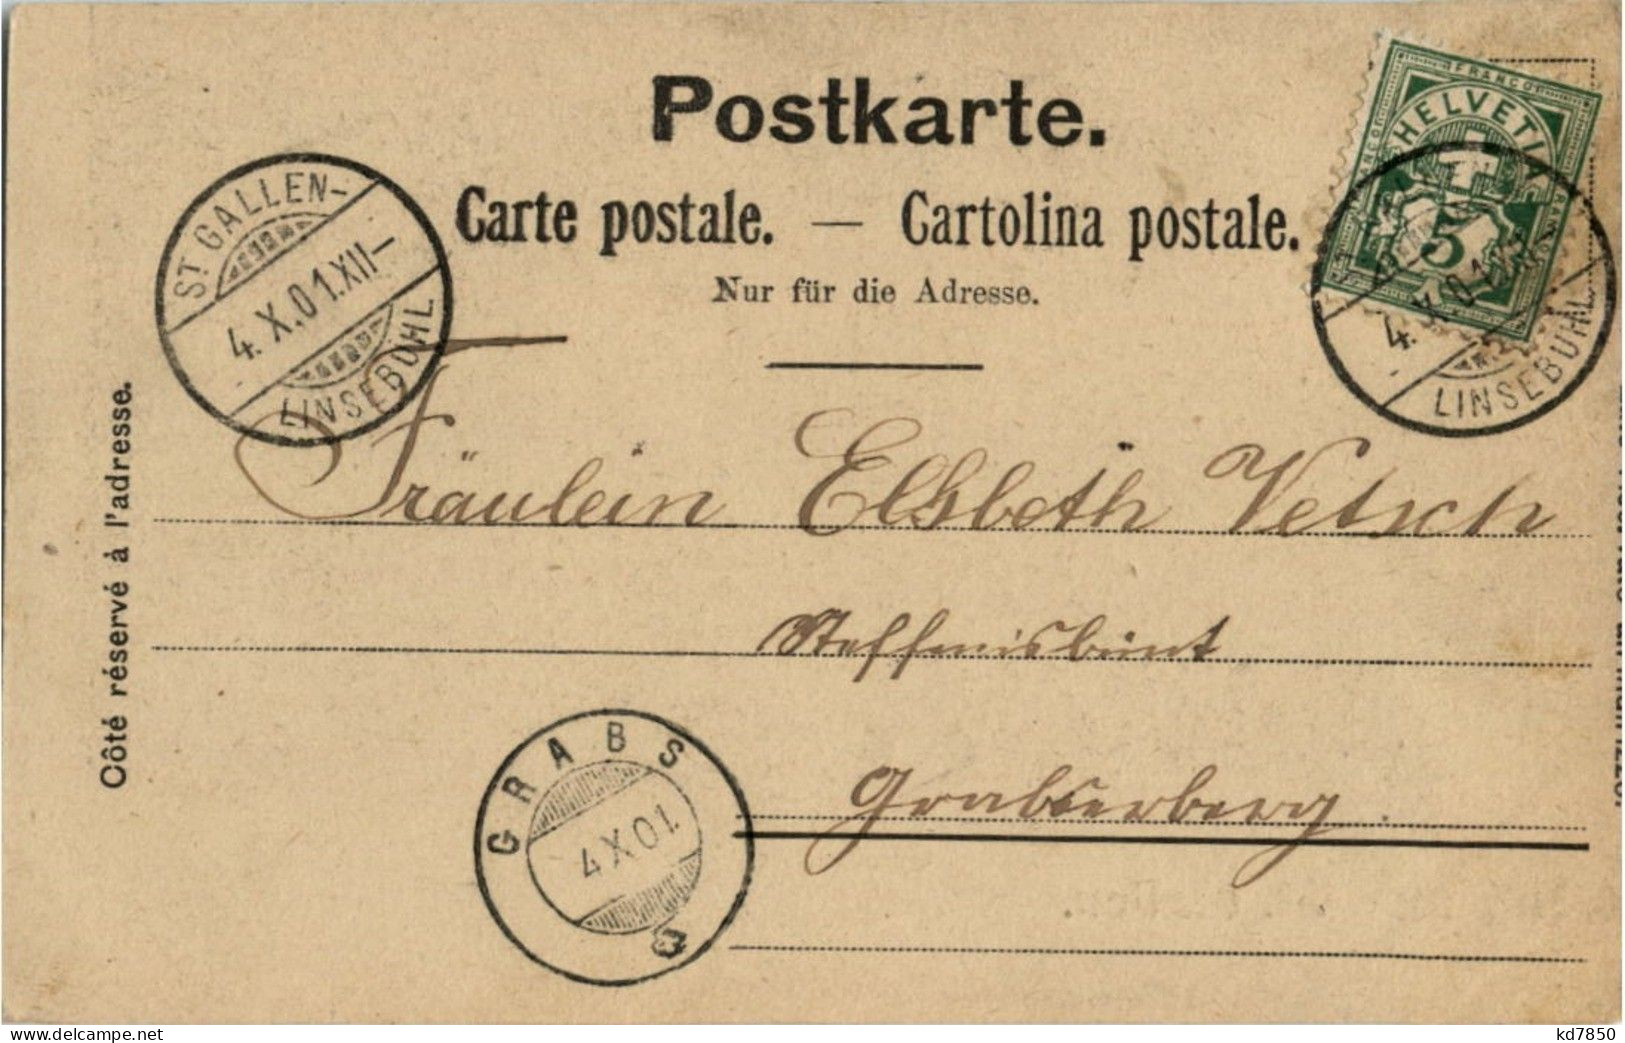 Postkarte.
Carte postale. — Cartolina postale.
Nur für die Adresse.
FRANCO
HELVETIA
5
ST GALLEN-
4.X.01.XII-
LINSEBÜHL
4.X.01
LINSEBÜHL
Côté réservé à l'adresse.
Fräulein Elsbeth Vetsch
Steffenisbünt
Grabserberg.
GRABS
4 X 01.
www.delcampe.net
kd7850